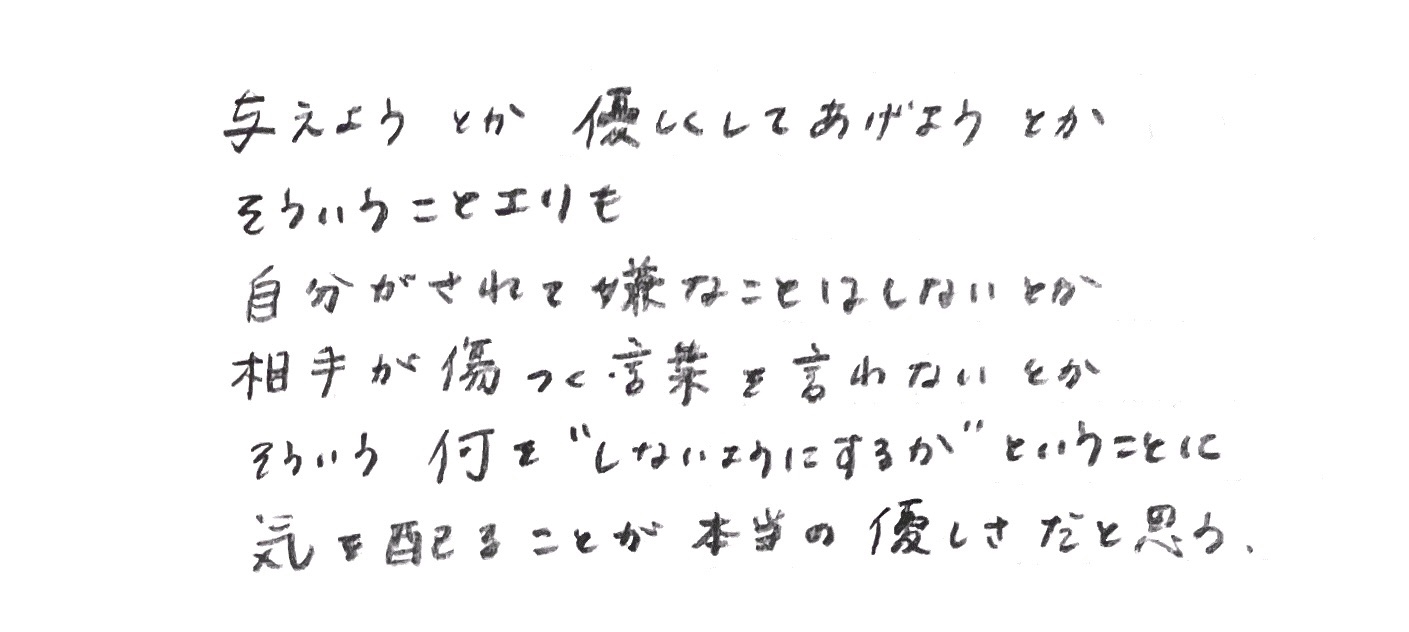 与えようとか 優しくしてあげようとか
そういうことよりも
自分がされて嫌なことはしないとか
相手が傷つく言葉を言わないとか
そういう 何を“しないようにするか”ということに
気を配ることが 本当の優しさだと思う.